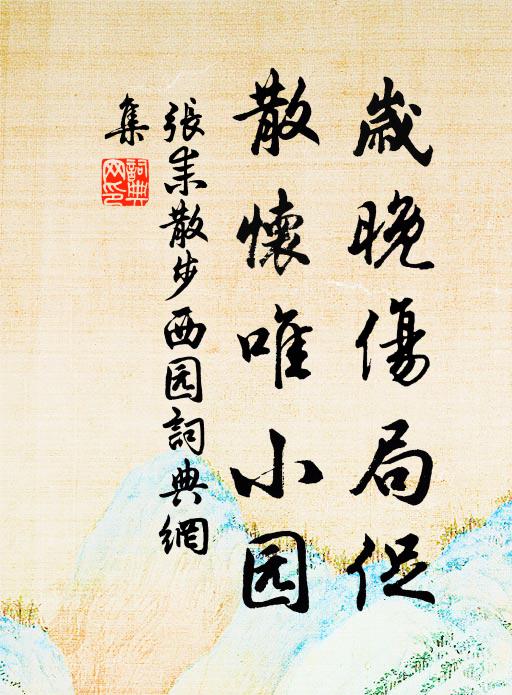 歲晚傷局促
散懷唯小园
張耒散步西园詞典網
集
詞典
网印